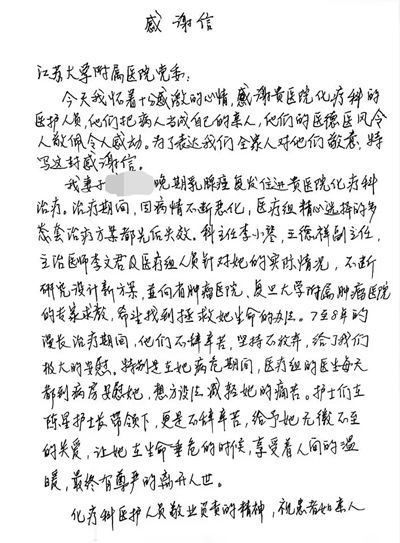 感谢信
江苏大学附属医院党委:
今天我怀着十分感激的心情,感谢贵医院化疗科的
医护人员,他们把病人当成自己的亲人,他们的医德医风令
人敬佩令人感动。为了表达我们全家人对他们敬意,特
写这封感谢信。
我妻子 晚期乳腺癌复发住进贵医院化疗科
治疗。治疗期间,因病情不断恶化,医疗组精心选择的多
套治疗方案都先后失效。科主任李小琴、王德祥副主任,
主治医师李文君及医疗组人员针对她的实际情况,不断
研究设计新方案,並向省肿瘤医院、复旦大学附属肿瘤医院
的专家求教,希望找到拯救她生命的办法。7至8年的
漫长治疗期间,他们不辞辛苦,坚持不放弃,给了我们
极大的安慰。特别是在她病危期间,医疗组的医生每天
都到病房安慰她,想方设法减轻她的痛苦。护士们在
陈星护士长带领下,更是不辞辛苦,给予她无微不至
的关爱,让她在生命垂危的时候,享受着人间的温
暖,最终有尊严的离开人世。
化疗科医护人员敬业负责的精神,视患者如亲人